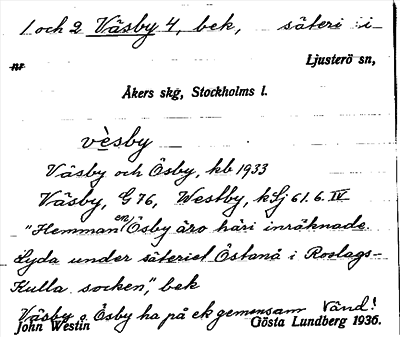 1 och 2 Väsby 4, bek, säteri i
nr
Ljusterö sn,
Åkers skg, Stockholms l.
vèsby
Väsby och Ösby, kb 1933
Väsby, G 76, Westby, kSj 61.6.IV
"Hemman en Ösby äro häri inräknade.
Lyda under säteriet Östanå i Roslags-
Kulla socken," bek
Väsby o. Ösby ha på ek gemensam Vänd!
John Westin Gösta Lundberg 1936.